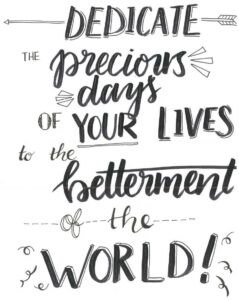 DEDICATE
THE precious
days
OF YOUR LIVES
to the
betterment
of the
WORLD!